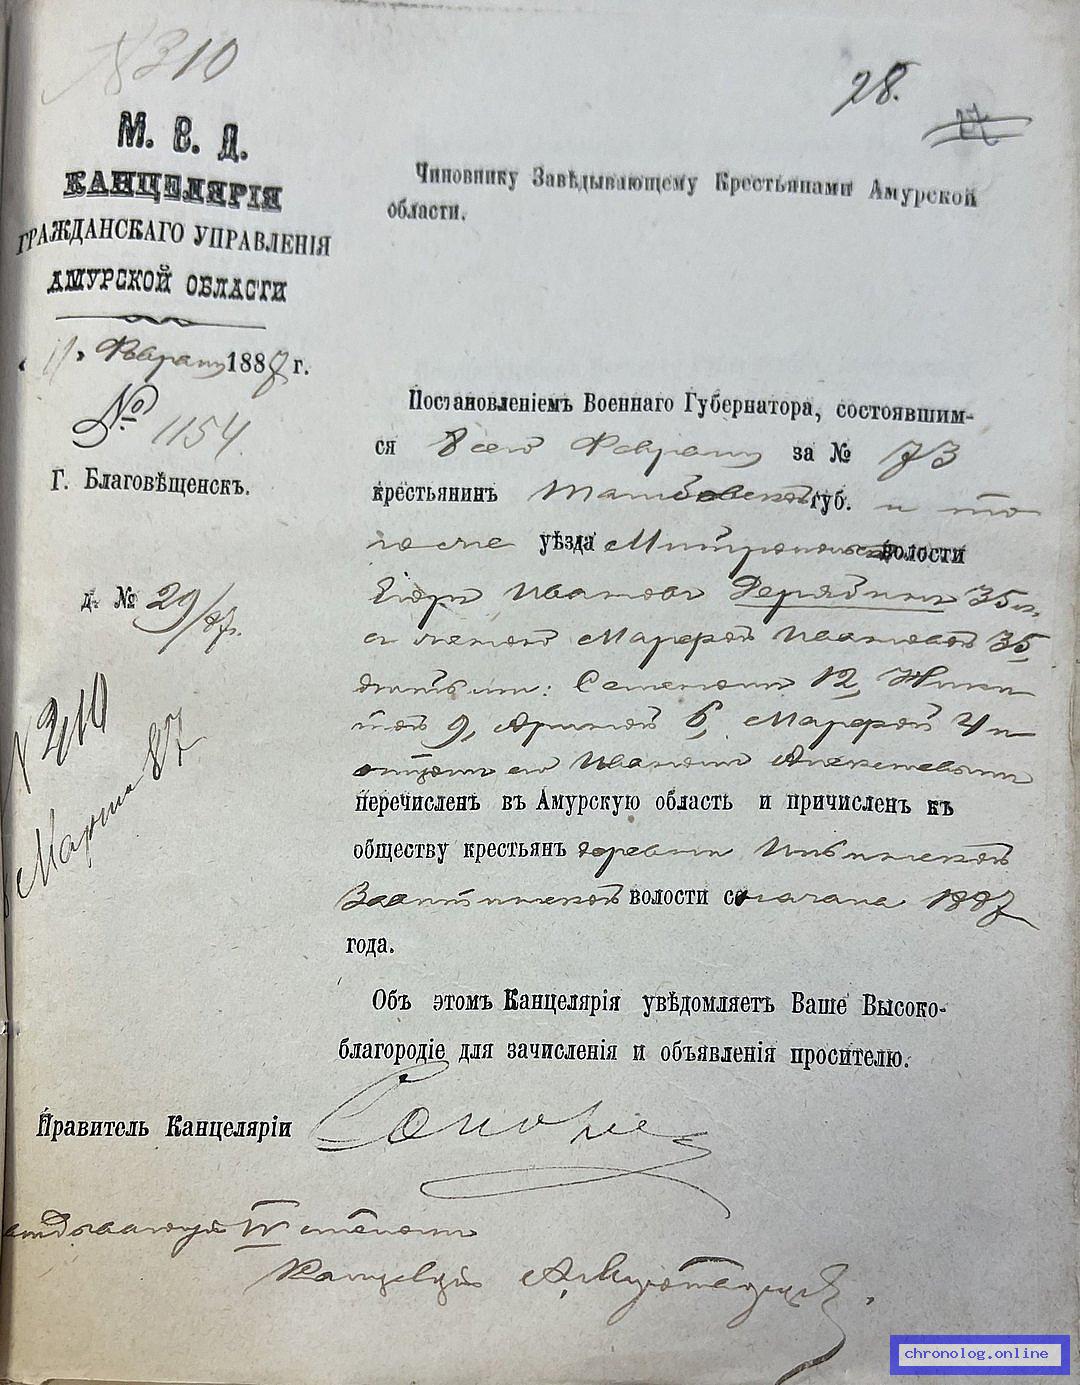 № 310
28.
27
М. В. Д.
КАНЦЕЛЯРІЯ
ГРАЖДАНСКАГО УПРАВЛЕНІЯ
АМУРСКОЙ ОБЛАСТИ
„ 11 „ Февраля 1887 г.
№ 1154.
Г. Благовѣщенскъ.
д. № 29/87г.
№ 310
Марта 87
Чиновнику Завѣдывающему Крестьянами Амурской
области.
Постановленіемъ Военнаго Губернатора, состоявшим-
ся 8 сего Февраля за № 73
крестьянин Тамбовской губ. и того
же уѣзда волости
Егоръ Ивановъ Дерябинъ 35 л.
съ женою Марфой Ивановой 35,
дѣтьми: Семеномъ 12, Ники-
той 9, Ариной 6, Марфой 4 и
отцомъ его Иваномъ
перечисленъ въ Амурскую область и причисленъ къ
обществу крестьян деревни
волости съ начала 1887
года.
Объ этомъ Канцелярія увѣдомляетъ Ваше Высоко-
благородіе для зачисленія и объявленія просителю.
Правитель Канцеляріи
IV
chronolog.online